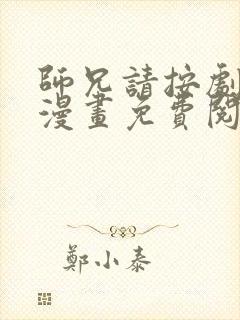 師兄請按劇
漫畫免費閱
鄭小泰